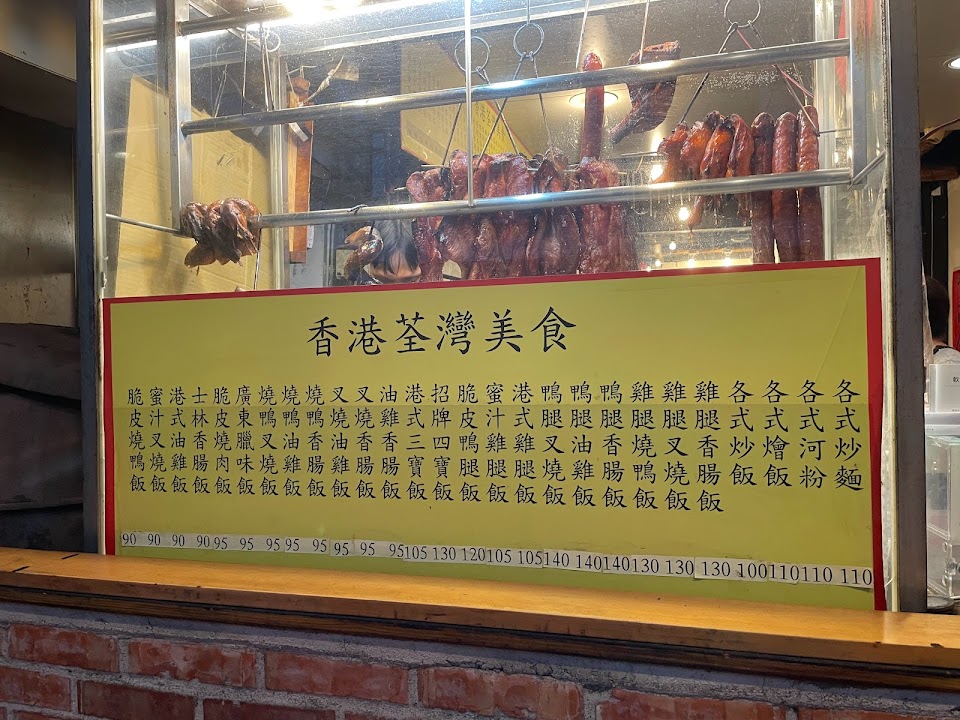 香港荃灣美食
脆皮燒鴨飯
蜜汁叉燒飯
港式油雞飯
士林香腸飯
脆皮燒肉飯
廣東臘味飯
燒鴨叉燒飯
燒鴨油雞飯
燒鴨香腸飯
叉燒油雞飯
叉燒香腸飯
油雞香腸飯
港式三寶飯
招牌四寶飯
脆皮鴨腿飯
蜜汁雞腿飯
港式雞腿飯
鴨腿叉燒飯
鴨腿油雞飯
鴨腿香腸飯
雞腿燒鴨飯
雞腿叉燒飯
雞腿香腸飯
各式炒飯
各式燴飯
各式河粉
各式炒麵
90 90 90 90 95 95 95 95 95 95 95 95 105 130 120 105 105 140 140 140 130 130 130 100 110 110 110